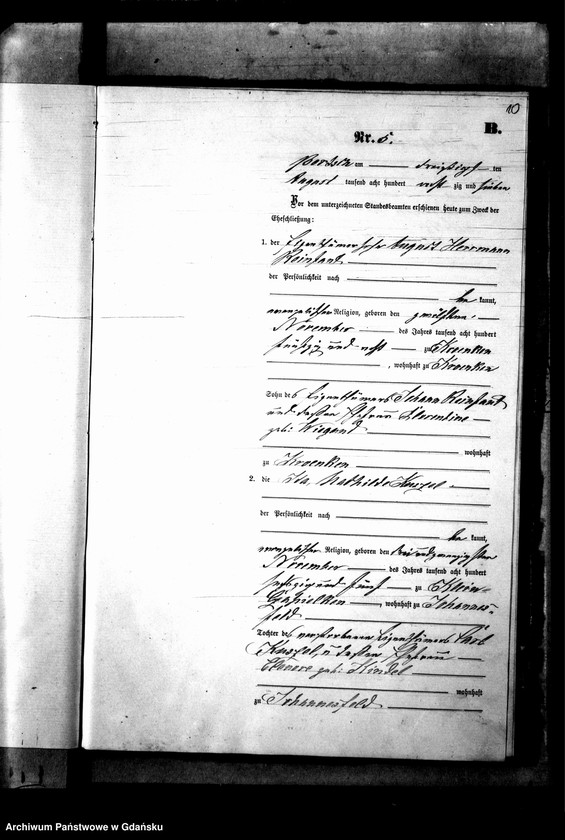 10
B.
Nr. 5.
am dreißigsten ten
August tausend acht hundert acht zig und sieben
Vor dem unterzeichneten Standesbeamten erschienen heute zum Zweck der
Eheschließung:
1. der Eigenthümersohn August Herrmann
Reinfant
der Persönlichkeit nach
be kannt,
evangelischer Religion, geboren den zwölften
November des Jahres tausend acht hundert
fünfzig und acht zu Kroenken
, wohnhaft zu Kroenken
Sohn des Eigenthümers Johann Reinfant
und dessen Ehefrau Florentine
geb: Wiegand
wohnhaft
zu Kroenken
2. die Ida Mathilde
der Persönlichkeit nach
be kannt,
evangelischer Religion, geboren den drei und zwanzigsten
November des Jahres tausend acht hundert
sechszig und fünf zu Klein-
, wohnhaft zu Johannes-
feld
Tochter des verstorbenen Eigenthümers Carl
u dessen Ehefrau
geb: Kindel
wohnhaft
zu Johannesfeld
Archiwum Państwowe w Gdańsku